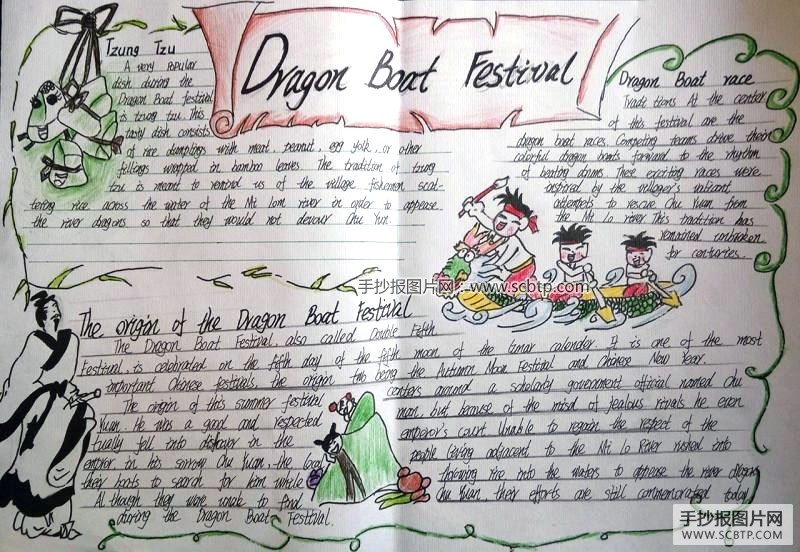 Dragon Boat Festival
Tzung Tzu
A very popular
dish during the
Dragon Boat festival
is tzung tzu. This
tasty dish consists
of rice dumplings with meat, peanut, egg yolk, or other
fillings wrapped in bamboo leaves. The tradition of tzung
tzu is meant to remind us of the village fishermen scat-
tering rice across the water of the Mi Lom river in order to appease
the river dragons so that they would not devour Chu Yun.
Dragon Boat race
Traditions At the center
of this festival are the
dragon boat races. Competing teams drive their
colorful dragon boats forward to the rhythm
of beating drums These exciting races were
inspired by the villager's valiant
attempts to rescue Chu Yuan from
the Mi Lo river This tradition has
remained unbroken
for centuries.
手抄报图片网：www.scbtp.com
The origin of the Dragon Boat Festival
The Dragon Boat Festival, also called Double Fifth
Festival, is celebrated on the fifth day of the fifth moon of the lunar calendar. It is one of the most
important Chinese festivals, the origin two being the Autumn Moon Festival and Chinese New Year.
The origin of this summer festival centers around a scholarly government official named Chu
Yuan. He was a good and respected man, but because of the misd of jealous rivals he even
tually fell into disfavor in the emperor's court. Unable to regain the respect of the
empror in his sorrow Chu Yuan, the local people living adjacent to the Mi Lo River rushed into
their boats to search for him while throwing rice into the waters to appease the river dragons
Although they were unable to find Chu Yuan, their efforts are still commemorated today
during the Dragon Boat Festival.
手抄报图片网
WWW.SCBTP.COM